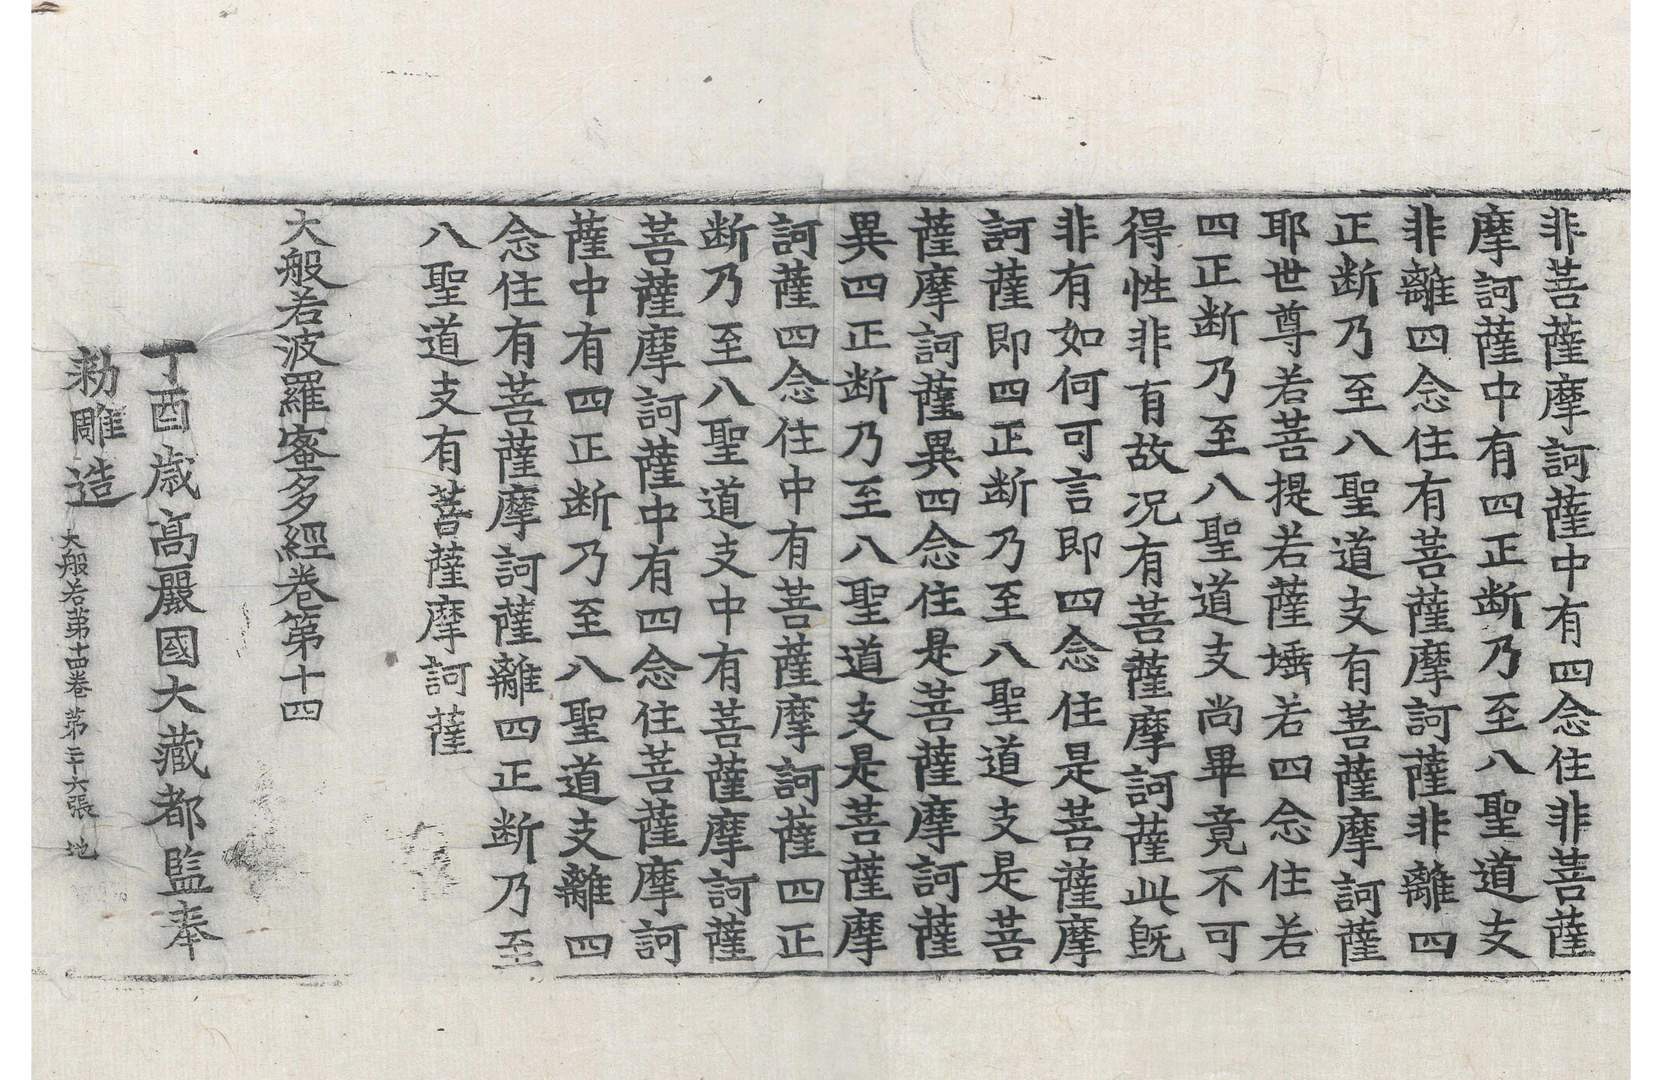 非菩薩摩訶薩中有四念住非菩薩
摩訶薩中有四正断乃至八聖道支
非離四念住有菩薩摩訶薩非離四
正断乃至八聖道支有菩薩摩訶薩
耶世尊若菩提若薩埵若四念住若
四正断乃至八聖道支尚畢竟不可
得性非有故况有菩薩摩訶薩此旣
非有如何可言即四念住是菩薩摩
訶薩即四正断乃至八聖道支是菩
薩摩訶薩異四念住是菩薩摩訶薩
異四正断乃至八聖道支是菩薩摩
訶薩四念住中有菩薩摩訶薩四正
断乃至八聖道支中有菩薩摩訶薩
菩薩摩訶薩中有四念住菩薩摩訶
薩中有四正断乃至八聖道支離四
念住有菩薩摩訶薩離四正断乃至
八聖道支有菩薩摩訶薩
大般若波羅蜜多經卷第十四
丁酉歳高麗國大藏都監奉
勑雕造
大般若第十四卷 第二十六張 地